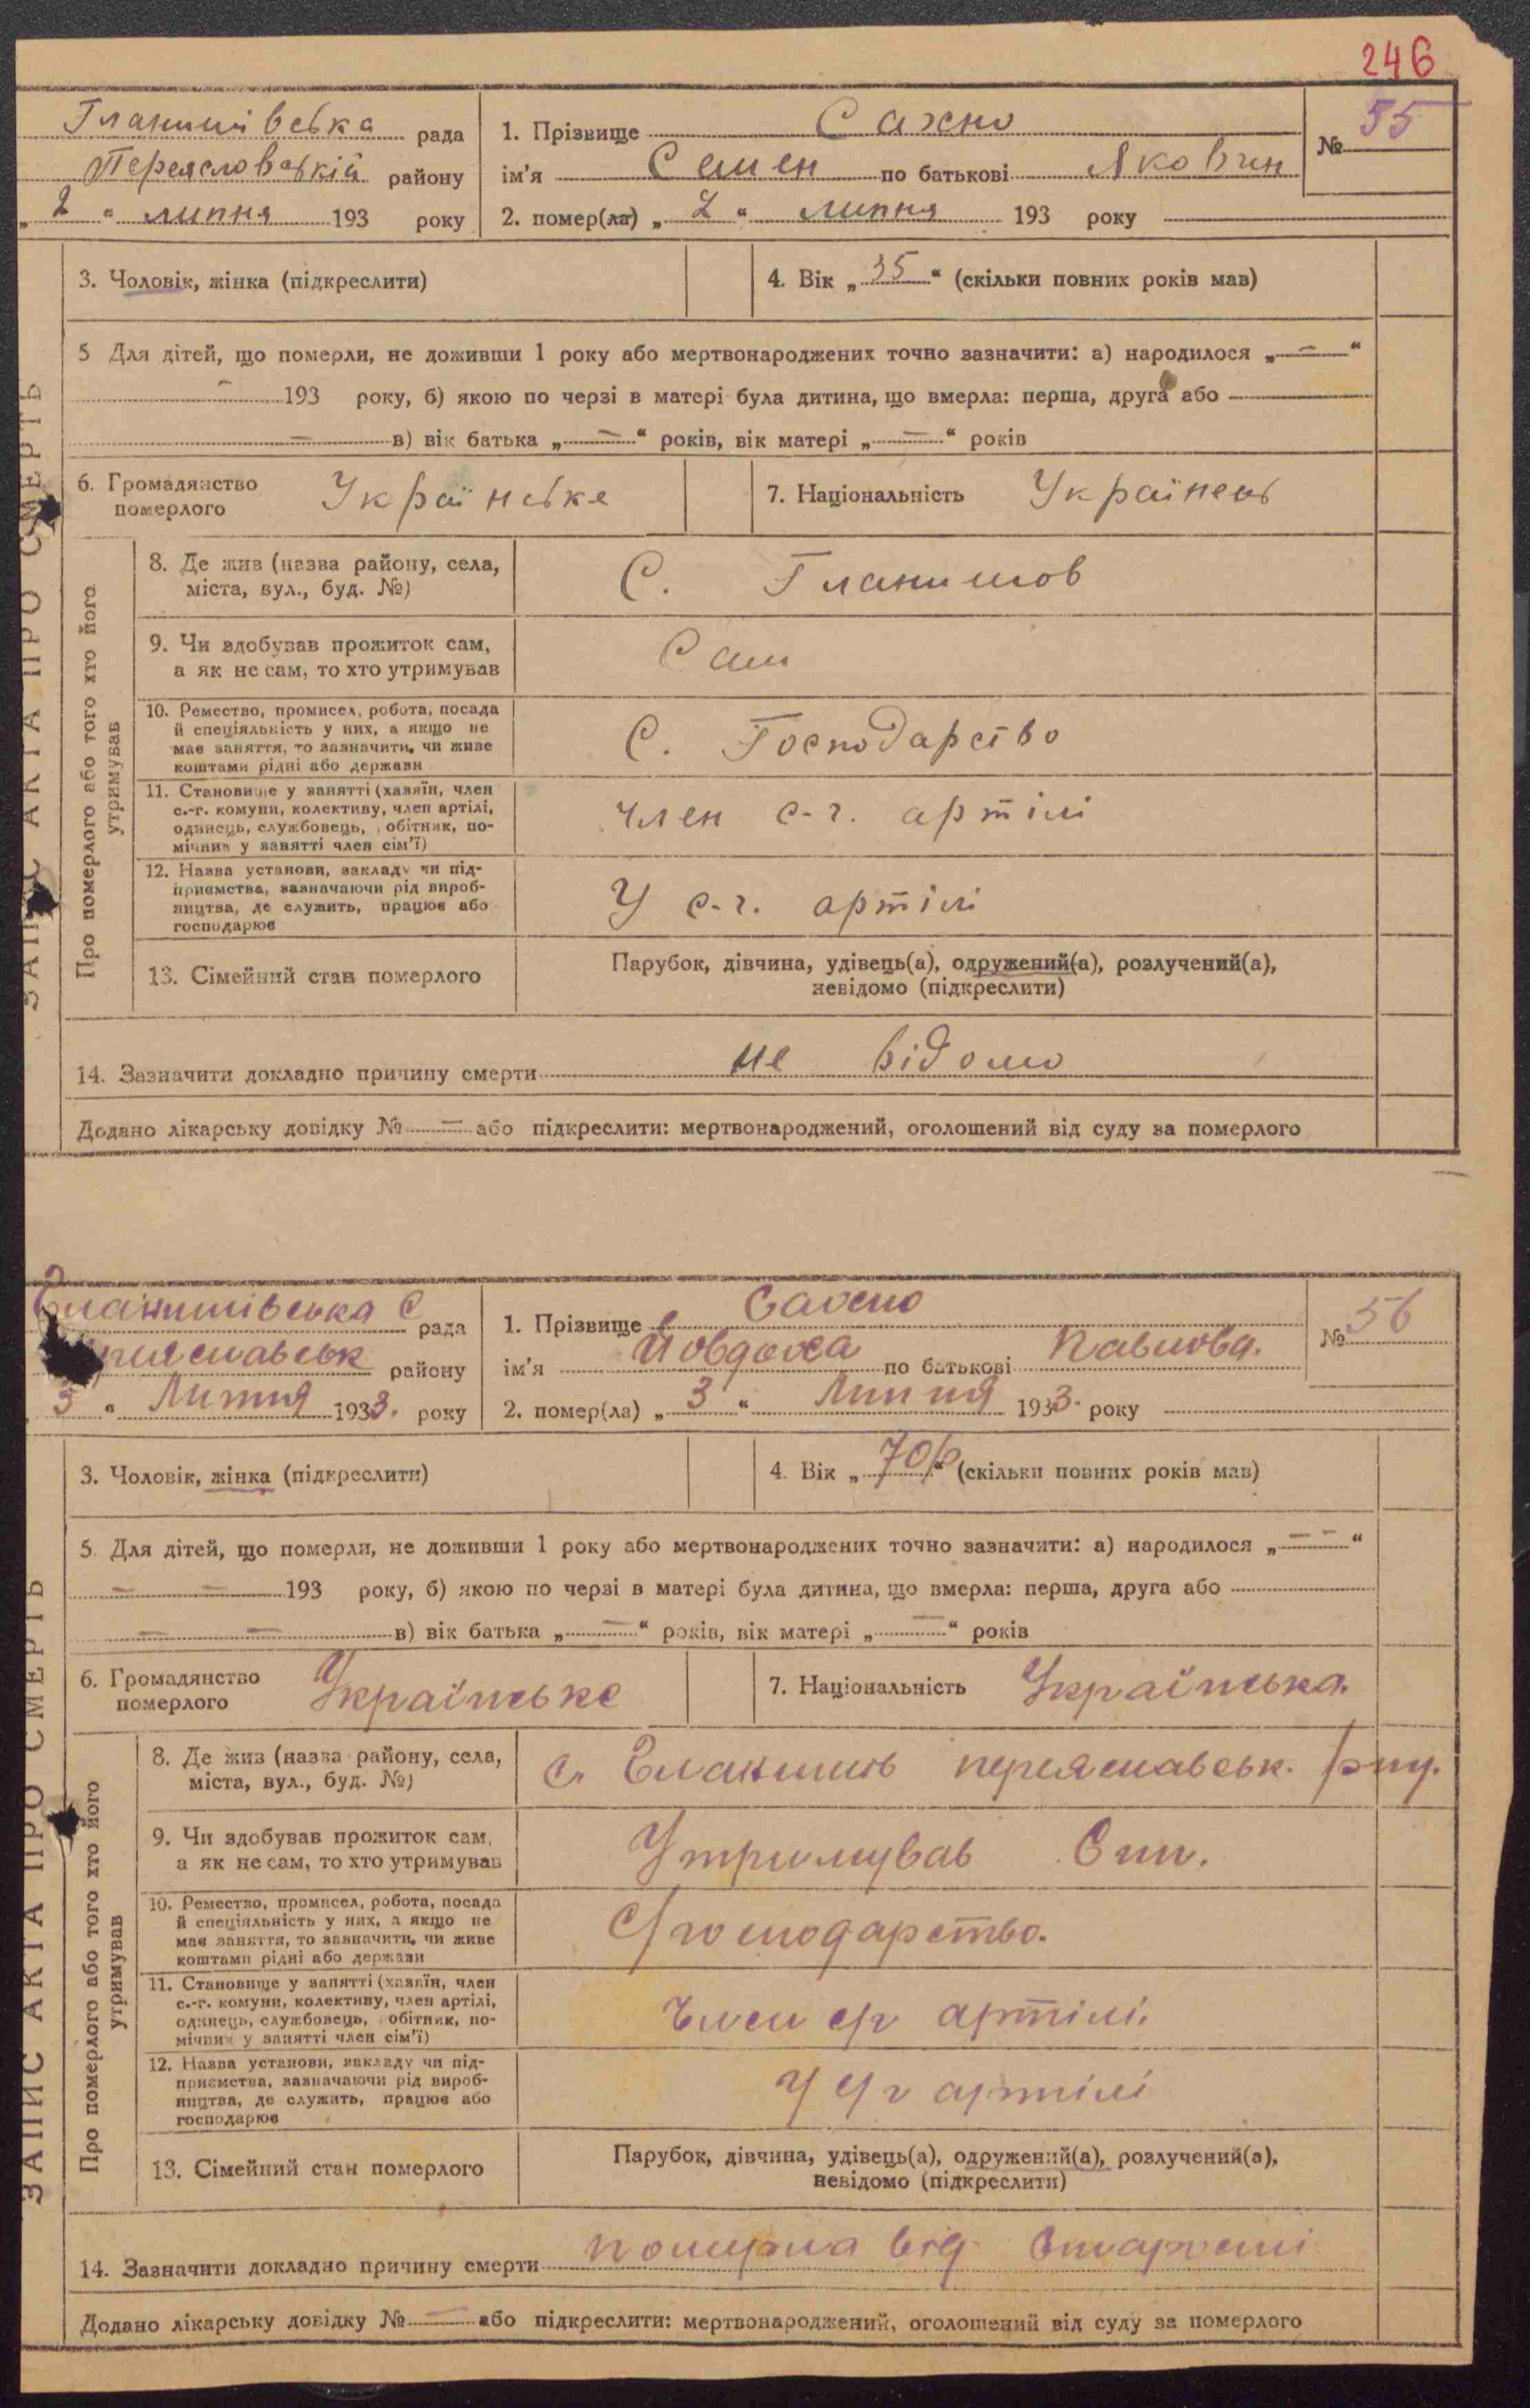 246
Гланишівська рада
Переяславський району
„ 2 “ липня 193 року
1. Прізвище Сахно
ім'я Семен по батькові Яковин
№ 55
2. помер(ла) „ 2 “ липня 193 року
ЗАПИС АКТА ПРО СМЕРТЬ
3. Чоловік, жінка (підкреслити)
4. Вік „ 35 “ (скільки повних років мав)
5 Для дітей, що померли, не доживши 1 року або мертвонароджених точно зазначити: а) народилося „ — “
— 193 року, б) якою по черзі в матері була дитина, що вмерла: перша, друга або
— в) вік батька „ — “ років, вік матері „ — “ років
6. Громадянство
померлого
Українське
7. Національність Українець
Про померлого або того хто його
утримував
8. Де жив (назва району, села,
міста, вул., буд. №)
С. Гланишов
9. Чи здобував прожиток сам,
а як не сам, то хто утримував
Сам
10. Ремество, промисел, робота, посада
й спеціяльність у них, а якщо не
має заняття, то зазначити, чи живе
коштами рідні або держави
С. Господарство
11. Становище у занятті (хазяїн, член
с.-г. комуни, колективу, член артілі,
одинець, службовець, обітник, по-
мічник у занятті член сім'ї)
член с-г. артілі
12. Назва установи, закладу чи під-
приємства, зазначаючи рід вироб-
ництва, де служить, працює або
господарює
У с-г. артілі
13. Сімейний стан померлого
Парубок, дівчина, удівець(а), одружений(а), розлучений(а),
невідомо (підкреслити)
14. Зазначити докладно причину смерти не відомо
Додано лікарську довідку № — або підкреслити: мертвонароджений, оголошений від суду за померлого
Гланишівська С рада
району
3 “ Липня 1933. року
1. Прізвище Сахно
ім'я Йовдоха по батькові Павлова.
№ 56
2. помер(ла) „ 3 “ Липня 1933. року
ЗАПИС АКТА ПРО СМЕРТЬ
3. Чоловік, жінка (підкреслити)
4. Вік „ 70р “ (скільки повних років мав)
5. Для дітей, що померли, не доживши 1 року або мертвонароджених точно зазначити: а) народилося „ — — “
— — 193 року, б) якою по черзі в матері була дитина, що вмерла: перша, друга або
— — в) вік батька „ — “ років, вік матері „ — “ років
6. Громадянство
померлого
Українське
7. Національність Українська.
Про померлого або того хто його
утримував
8. Де жив (назва району, села,
міста, вул., буд. №)
с. Гланишів переяславськ. р-ну.
9. Чи здобував прожиток сам,
а як не сам, то хто утримував
Утримував Син.
10. Ремество, промисел, робота, посада
й спеціяльність у них, а якщо не
має заняття, то зазначити, чи живе
коштами рідні або держави
С/господарство.
11. Становище у занятті (хазяїн, член
с.-г. комуни, колективу, член артілі,
одинець, службовець, обітник, по-
мічник у занятті член сім'ї)
Член с/г артілі.
12. Назва установи, закладу чи під-
приємства, зазначаючи рід вироб-
ництва, де служить, працює або
господарює
У с/г артілі
13. Сімейний стан померлого
Парубок, дівчина, удівець(а), одружений(а), розлучений(а),
невідомо (підкреслити)
14. Зазначити докладно причину смерти померла від Старости
Додано лікарську довідку № — або підкреслити: мертвонароджений, оголошений від суду за померлого